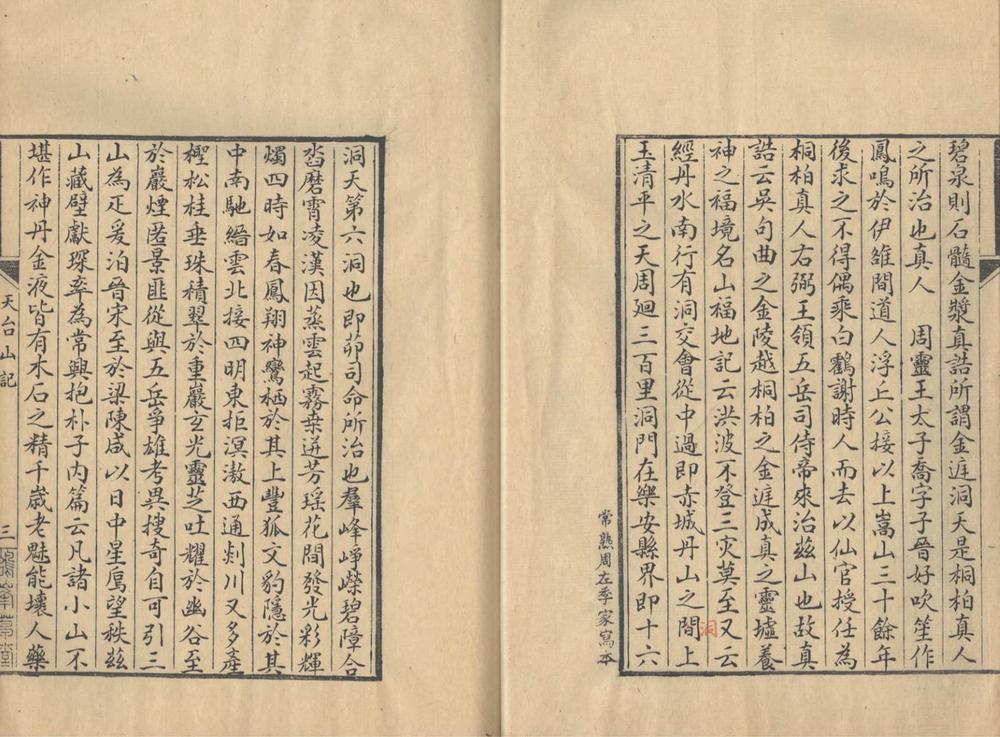 碧泉則石髓金漿真誥所謂金庭洞天是桐柏真人
之所治也真人　周靈王太子喬字子晉好吹笙作
鳳鳴於伊雒間道人浮丘公接以上嵩山三十餘年
後求之不得偶乘白鶴謝時人而去以仙官授任為
桐柏真人右弼王領五岳司侍帝來治兹山也故真
誥云吳句曲之金陵越桐柏之金庭成真之靈墟養
神之福境名山福地記云洪波不登三灾莫至又云
經丹水南行有洞交會從中過即赤城丹山之間上
洞
玉清平之天周廻三百里洞門在樂安縣界即十六
常熟周左季家寫本
洞天第六洞也即茆司命所治也羣峰崢嶸碧障合
沓磨霄凌漢因蒸雲起霧桒迸芳瑶花間發光彩輝
燭四時如春鳳翔神鸞栖於其上豐狐文豹隱於其
中南馳縉雲北接四明東拒溟渤西通剡川又多產
檉松桂垂珠積翠於重巖玄光靈芝吐耀於幽谷至
於巖煙匿景匪從與五岳爭雄考異搜奇自可引三
山為疋爰洎晉宋至於梁陳咸以日中星鳥望秩兹
山藏璧獻琛率為常興抱朴子内篇云凡諸小山不
堪作神丹金液皆有木石之精千歳老魅能壞人藥
天台山記
三